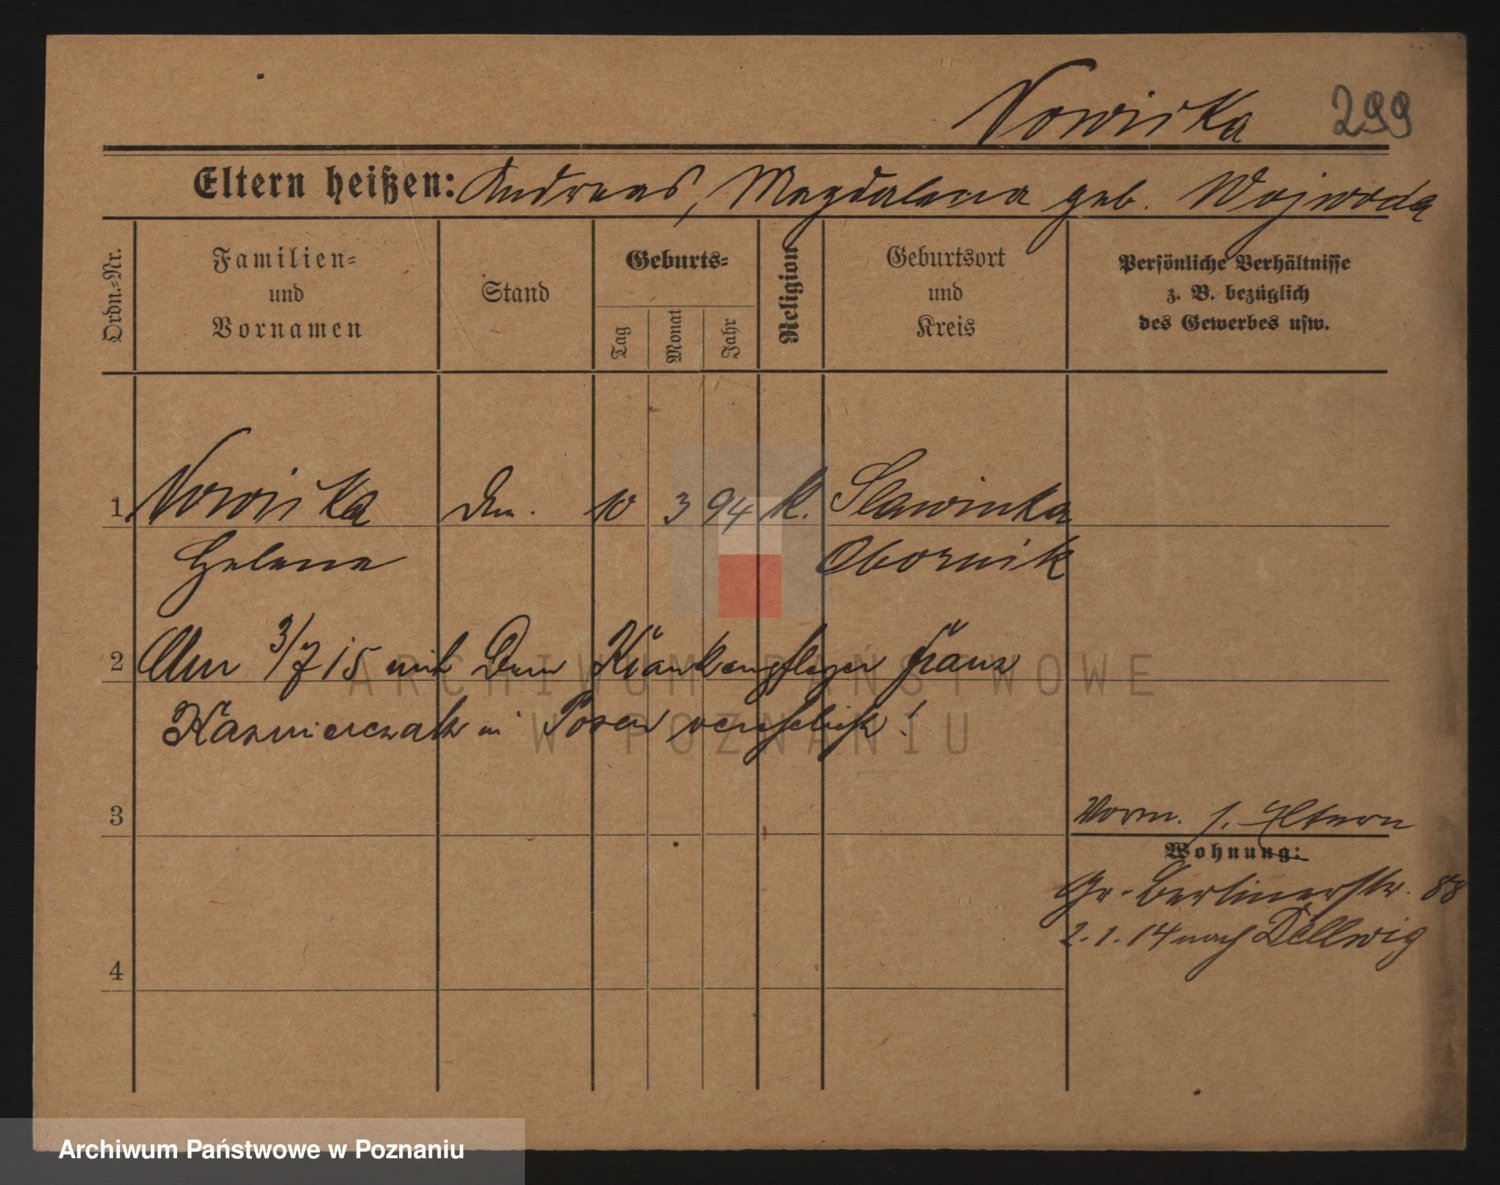 Nowicka 299
Eltern heißen: Andreas, Magdalena geb. Wojwoda
Ordn.-Nr.
Familien-
und
Vornamen
Stand
Geburts-
Tag
Monat
Jahr
Religion
Geburtsort
und
Kreis
Persönliche Verhältnisse
z. B. bezüglich
des Gewerbes usw.
1 Nowicka 10 3 94 k. Slawinka
Helene Obornik
2 Am 3/7 15 mit Dem Krankenpfleger Franz
Kazmierczak in Posen verehelicht!
3
Vorm. s. Eltern
Wohnung:
Gr. Berlinerstr. 88
2.1.14 nach Dellwig
4
ARCHIWUM PAŃSTWOWE
W POZNANIU
Archiwum Państwowe w Poznaniu